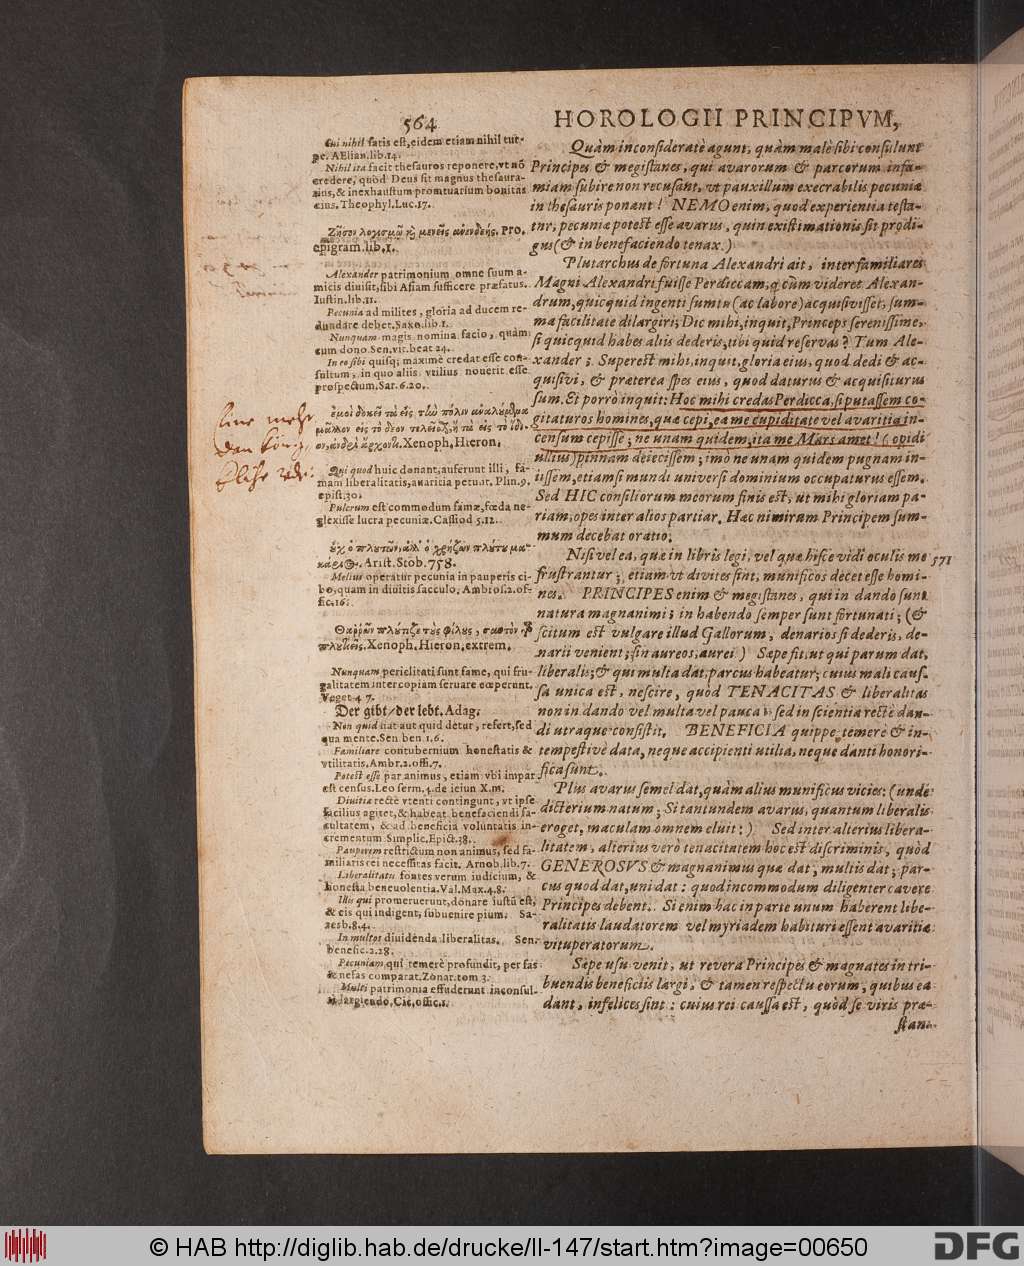 564
HOROLOGII PRINCIPVM,
Cui nihil satis est, eidem etiam nihil tur-
pe. AElian. lib. 14.
Nihil ita facit thesauros reponere, vt nō
credere, quòd Deus sit magnus thesaura-
rius, & inexhaustum promtuarium bonitas
eius. Theophyl. Luc. 17.
epigram. lib. 1.
Alexander patrimonium omne suum a-
micis diuisit, sibi Asiam sufficere præfatus.
Iustin. lib. 11.
Pecunia ad milites, gloria ad ducem re-
dundare debet. Saxo. lib. 1.
Nunquam magis nomina facio, quàm
cum dono. Sen. vit. beat 24.
In eo sibi quisq; maximè credat esse con-
sultum, in quo aliis vtilius nouerit esse
prospectum. Sar. 6. 20.
ἐμοὶ δοκεῖ τὰ εἰς τὼ πόλιν ἀναλύμθρα
μᾶλλον εἰς τὸ δέον τελεῖσθζ, ἢ τὰ εἰς τὸ ἴδι-
ον, ἀνδρὶ ἄρχοντι. Xenoph, Hieron.
Qui quod huic donant, auferunt illi, fa-
mam liberalitatis, auaritia petunt. Plin. 9.
epist. 30.
Pulcrum est commodum famæ, fœda ne-
glexisse lucra pecuniæ. Cassiod 5. 12.
Arist. Stob. 758.
Melius operatur pecunia in pauperis ci-
bo, quam in diuitis sacculo. Ambros. 2. of-
fic. 16.
Xenoph. Hieron. extrem.
Nunquam periclitati sunt fame, qui fru-
galitatem inter copiam seruare cœperunt.
Veget 4 7.
Der gibt / der lebt. Adag.
Non quid fiat aut quid detur, refert, sed
qua mente. Sen ben 1.6.
Familiare contubernium honestatis &
vtilitatis. Ambr. 2. offi. 7.
Potest esse par animus, etiam vbi impar
est census. Leo serm. 4. de ieiun X. m.
Diuitiæ rectè vtenti contingunt, vt ipse
facilius agitet, & habeat benefaciendi fa-
cultatem, & ad beneficia voluntatis in-
crementum Simplic. Epict. 38.
Pauperem restrictum non animus, sed fa-
miliaris rei necessitas facit. Arnob. lib. 7.
Liberalitatis fontes verum iudicium, &
honesta beneuolentia. Val. Max. 4.8.
Illis qui promeruerunt, donare iustū est,
& eis qui indigent, subuenire pium. Sa-
resb. 8. 4.
In multos diuidenda liberalitas. Sen.
benefic. 2. 28.
Pecuniam qui temerè profundit, per fas
& nefas comparat. Zonar. tom 3.
Multi patrimonia effuderunt inconsul-
tè largiendo. Cic. offic. 1.
Quàm inconsideratè agunt, quàm malè sibi consulunt
Principes & megistanes, qui avarorum & parcorum infa-
miam subire non recusant, vt pauxillum execrabilis pecuniæ
in thesauris ponant! NEMO enim, quod experientia testa-
tur, pecuniæ potest esse avarus, quin existimationis sit prodi-
gus (& in benefaciendo tenax.)
Plutarchus de fortuna Alexandri ait, inter familiares
Magni Alexandri fuisse Perdiccam, q; cùm videret Alexan-
drum, quicquid ingenti sumtu (ac labore) acquisivisset, sum-
ma facilitate dilargiri; Dic mihi, inquit, Princeps serenissime,
si quicquid habes aliis dederis, tibi quid reservas? Tum Ale-
xander; Superest mihi, inquit, gloria eius, quod dedi & ac-
quisivi, & præterea spes eius, quod daturus & acquisiturus
sum. Et porrò inquit: Hoc mihi credas Perdicca, si putassem co-
gitaturos homines, quæ cepi, ea me cupiditate vel avaritia in-
censum cepisse; ne unam quidem, ita me Mars amet! (opidi
ullius) pinnam deiecissem; imò ne unam quidem pugnam in-
iissem, etiamsi mundi universi dominium occupaturus essem.
Sed HIC consiliorum meorum finis est, ut mihi gloriam pa-
riam, opes inter alios partiar. Hac nimirum Principem sum-
mum decebat oratio.
Nisi vel ea, quæ in libris legi, vel quæ hisce vidi oculis me
571
frustrantur; etiam vt divites sint, munificos decet esse homi-
nes. PRINCIPES enim & megistanes, qui in dando sunt
natura magnanimi; in habendo semper sunt fortunati; (&
scitum est vulgare illud Gallorum, denarios si dederis, de-
narii venient; sin aureos, aurei.) Sæpe fit, ut qui parum dat,
liberalis; & qui multa dat, parcus habeatur; cuius mali caus-
sa unica est, nescire, quòd TENACITAS & liberalitas
non in dando vel multa vel pauca; sed in scientia rectè dan-
di utraque consistit. BENEFICIA quippe temerè & in-
tempestivè data, neque accipienti utilia, neque danti honori-
fica sunt.
Plus avarus semel dat, quàm alius munificus vicies: (unde
dicterium natum; Si tantundem avarus, quantum liberalis
eroget, maculam omnem eluit:) Sed inter alterius libera-
litatem, alterius verò tenacitatem hoc est discriminis, quòd
GENEROSVS & magnanimus quæ dat, multis dat; par-
cus quod dat, uni dat: quod incommodum diligenter cavere
Principes debent. Si enim hac in parte unum haberent libe-
ralitatis laudatorem vel myriadem habituri essent avaritiæ
vituperatorum.
Sæpe usu venit, ut revera Principes & magnates in tri-
buendis beneficiis largi, & tamen respectu eorum, quibus ea
dant, infelices sint: cuius rei caussa est, quòd se viris præ-
stan-
© HAB http://diglib.hab.de/drucke/li-147/start.htm?image=00650
DFG